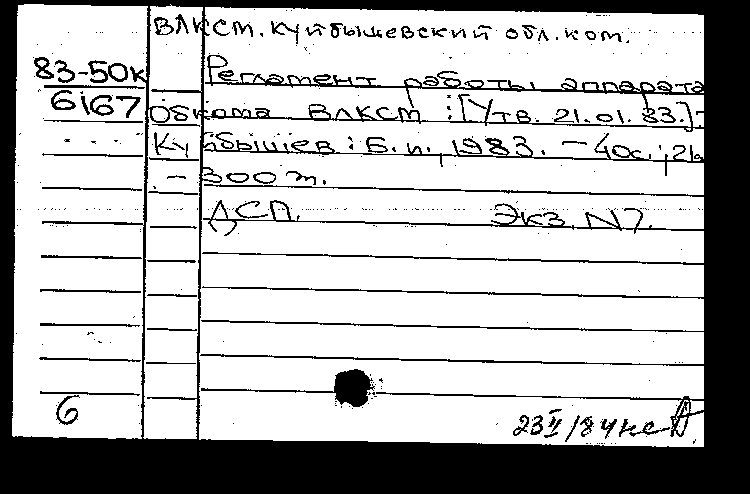 ВЛКСМ. Куйбышевский обл. ком.
83-50к Регламент работы аппарата
6167 обкома ВЛКСМ : [Утв. 21.01.83.].
Куйбышев : Б.и., 1983. - 40с.; 21
- 300 т.
ДСП. Экз. N7.
6
23 II/84